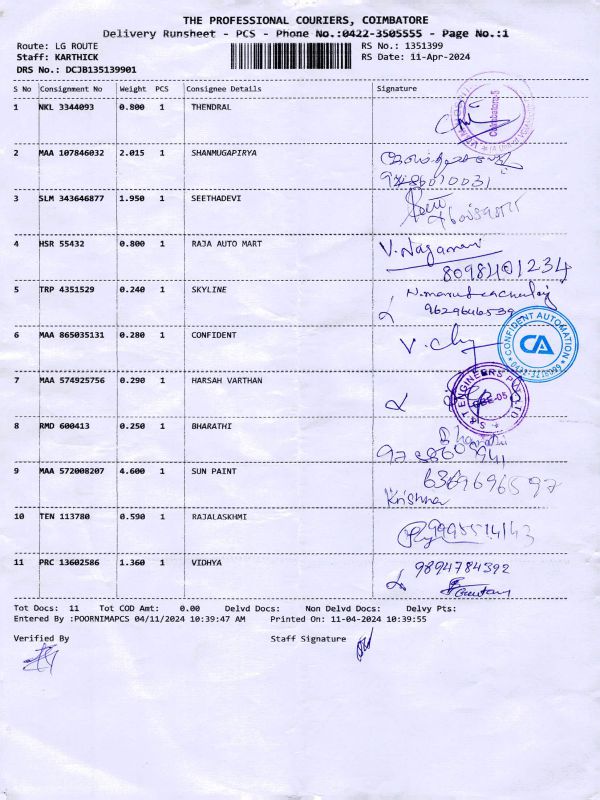 THE PROFESSIONAL COURIERS, COIMBATORE
Delivery Runsheet - PCS - Phone No.:0422-3505555 - Page No.:1
Route: LG ROUTE RS No.: 1351399
Staff: KARTHICK RS Date: 11-Apr-2024
DRS No.: DCJB135139901
S No Consignment No Weight PCS Consignee Details Signature
1 NKL 3344093 0.800 1 THENDRAL
Coimbatore-5
2 MAA 107846032 2.015 1 SHANMUGAPIRYA
3 SLM 343646877 1.950 1 SEETHADEVI
4 HSR 55432 0.800 1 RAJA AUTO MART V. Nagamani
8098401234
5 TRP 4351529 0.240 1 SKYLINE
9629646539
6 MAA 865035131 0.280 1 CONFIDENT
CONFIDENT AUTOMATION
CA
7 MAA 574925756 0.290 1 HARSAH VARTHAN
ENGINEERS
8 RMD 600413 0.250 1 BHARATHI Bharathi
9 MAA 572008207 4.600 1 SUN PAINT
Krishna
10 TEN 113780 0.590 1 RAJALASKHMI
11 PRC 13602586 1.360 1 VIDHYA 9894784392
Tot Docs: 11 Tot COD Amt: 0.00 Delvd Docs: Non Delvd Docs: Delvy Pts:
Entered By :POORNIMAPCS 04/11/2024 10:39:47 AM Printed On: 11-04-2024 10:39:55
Verified By Staff Signature